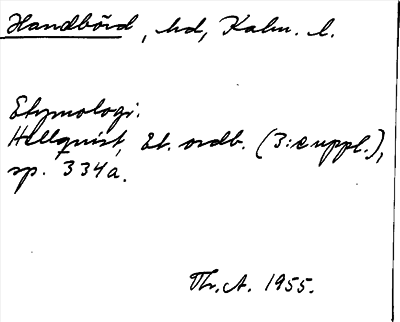 Handbörd, hd, Kalm. l.
Etymologi.
Hellquist, Et. ordb. (3:e uppl.),
sp. 334a.
Th. A. 1955.